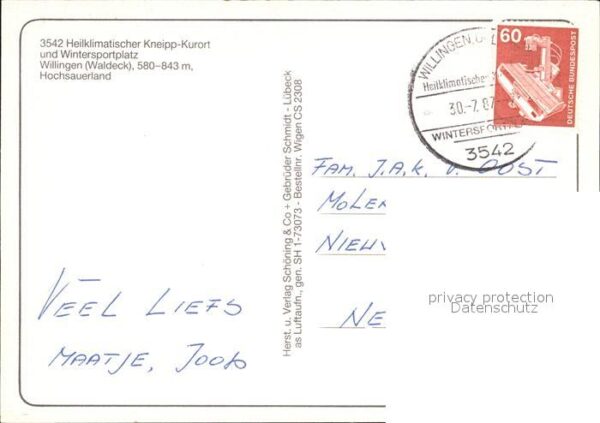 3542 Heilklimatischer Kneipp-Kurort
und Wintersportplatz
Willingen (Waldeck), 580–843 m,
Hochsauerland
WILLINGEN, U
Heilklimatischer
30.-7. 87
WINTERSPORTPL
3542
60
DEUTSCHE BUNDESPOST
Herst. u. Verlag Schöning & Co + Gebrüder Schmidt - Lübeck
as Luftaufn., gen. SH 1-73073 - Bestellnr. Wigen CS 2308
FAM. J.A.K. v. OOST
MOLE
NIEUW
NE
VEEL LIEFS
MAATJE, JOOP
privacy protection
Datenschutz